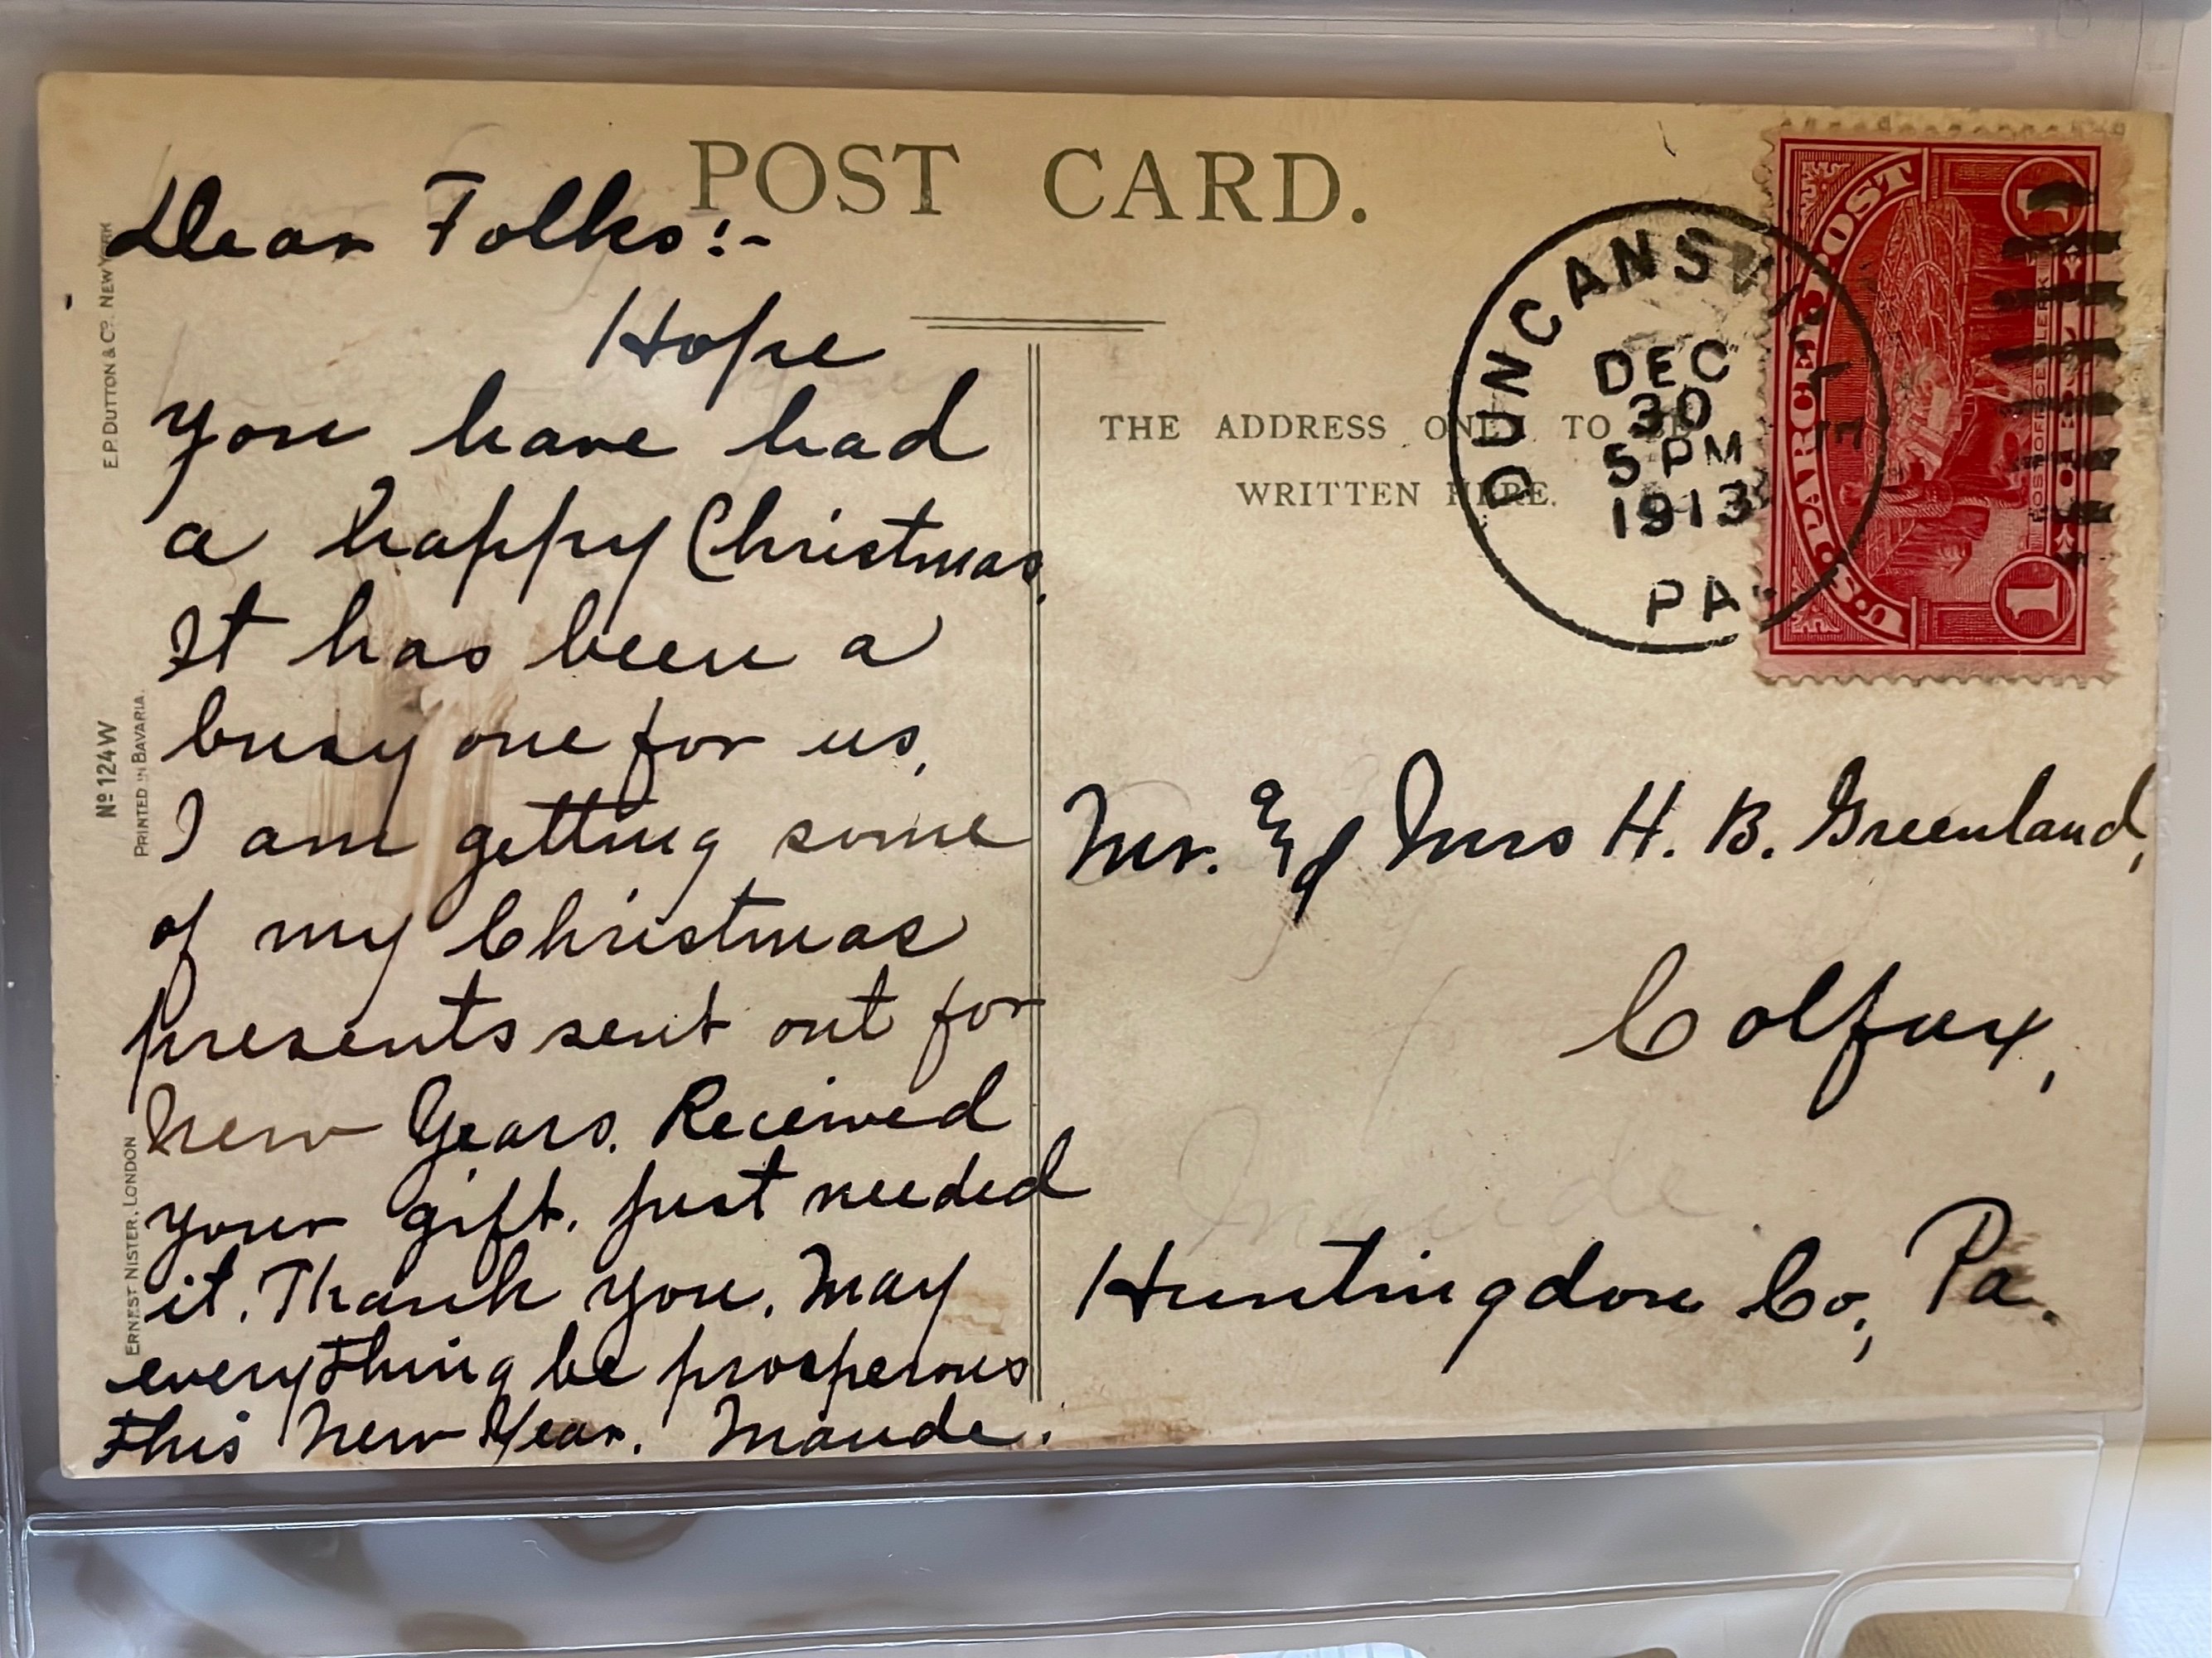 POST CARD.
Dear Folks:-
Hope
you have had
a happy Christmas.
It has been a
busy one for us.
I am getting some
of my Christmas
presents sent out for
New Years. Received
your gift, just needed
it. Thank you. May
everything be prosperous
this New Year. Maude.
E.P. DUTTON & Co. NEW YORK
No 124W
PRINTED IN BAVARIA.
ERNEST NISTER, LONDON
THE ADDRESS ONLY TO BE
WRITTEN HERE.
DUNCANSVILLE
DEC
30
5 PM
1913
PA.
U.S. PARCEL POST
1
1
POST OFFICE CLERK
Mr. & Mrs H. B. Greenland,
Colfax,
Maude
Huntingdon Co., Pa.